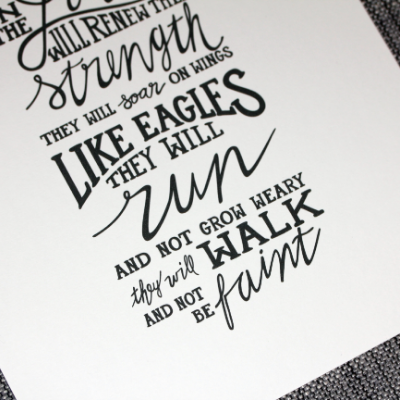 THE
WILL RENEW THE
strength
THEY WILL soar ON WINGS
LIKE EAGLES
THEY WILL
run
AND NOT GROW WEARY
they will WALK
AND NOT
BE faint